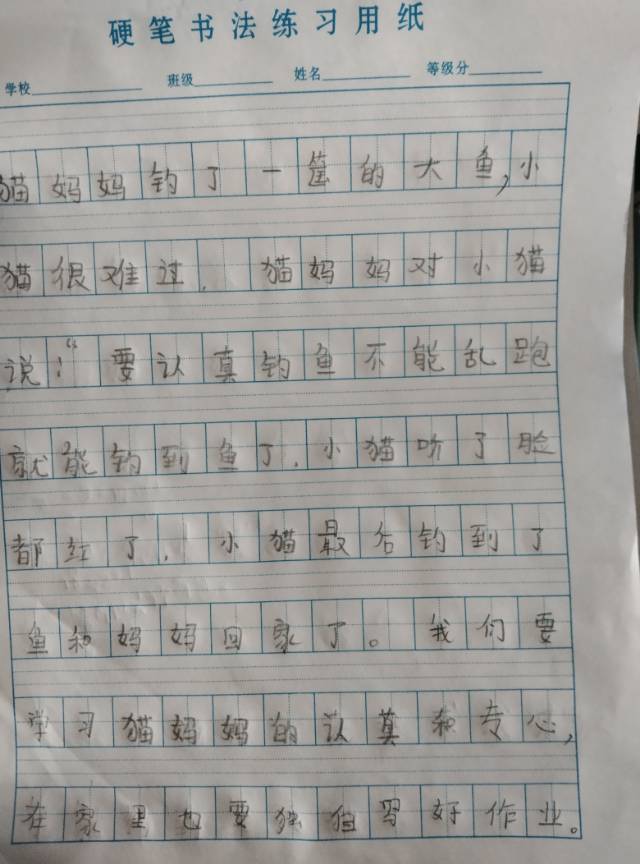 硬笔书法练习用纸
学校 班级 姓名 等级分
猫妈妈钓了一筐的大鱼,小
猫很难过. 猫妈妈对小猫
说:“要认真钓鱼不能乱跑
就能钓到鱼了.小猫听了脸
都红了. 小猫最后钓到了
鱼和妈妈回家了。我们要
学习猫妈妈的认真和专心,
在家里也要独自写好作业。